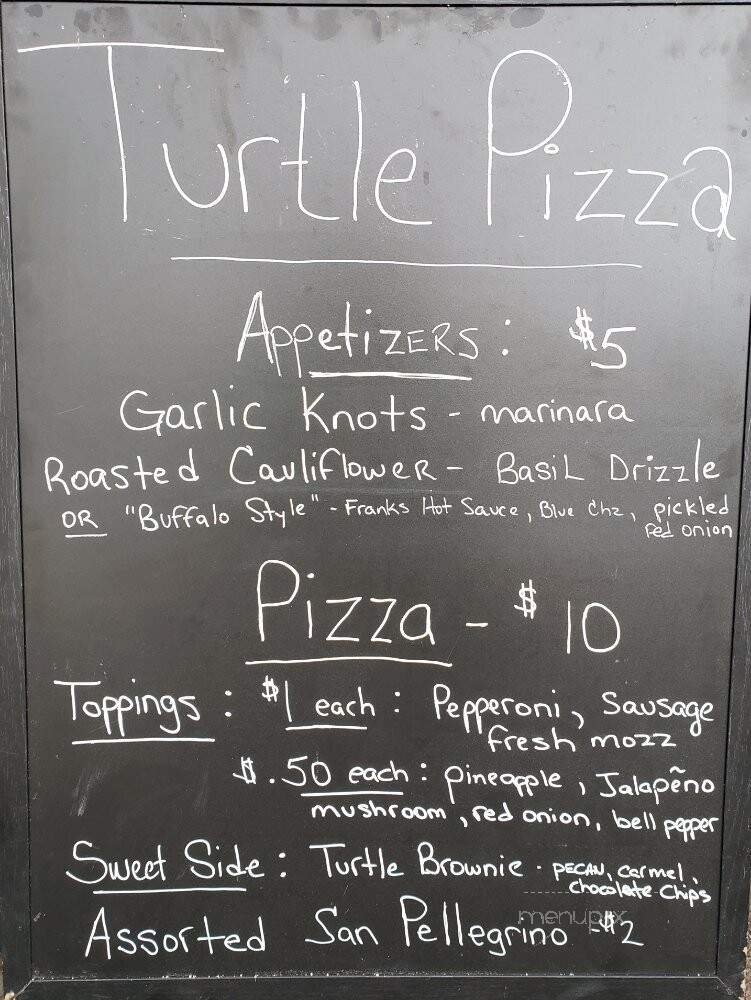 Turtle Pizza
Appetizers: $5
Garlic Knots - marinara
Roasted Cauliflower - Basil Drizzle
OR "Buffalo Style" - Franks Hot Sauce, Blue Chz, pickled
red onion
Pizza - $10
Toppings: $1 each: Pepperoni, Sausage
fresh mozz
$.50 each: pineapple, Jalapeño
mushroom, red onion, bell pepper
Sweet Side: Turtle Brownie - PECAN, carmel,
chocolate chips
menupix
Assorted San Pellegrino - $2